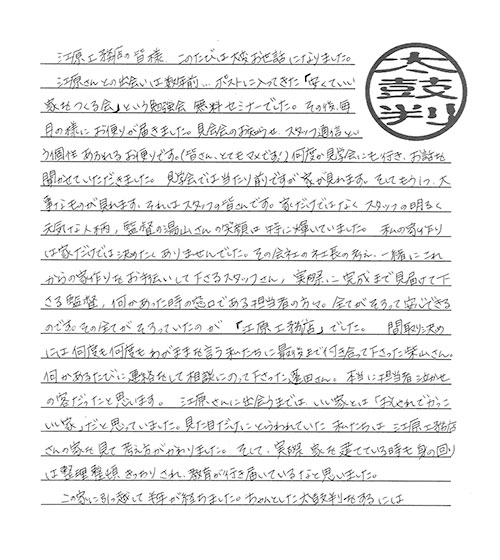 江原工務店の皆様、このたびは大変お世話になりました。
太鼓判
江原さんとの出会いは数年前…ポストに入ってきた「安くていい
家をつくる会」という勉強会 無料セミナーでした。その後、毎
月の様に お便りが届きました。見学会のお知らせ、スタッフ通信とい
う個性あふれるお便りです。(皆さん、とてもマメです!)何度か見学会にも行き、お話を
聞かせていただきました。見学会では当たり前ですが家が見れます。そしてもう1つ、大
事なものが見れます。それはスタッフの皆さんです。家だけではなく スタッフの明るく
元気な人柄、監督の湯山さんの笑顔は特に輝いていました。 私の家作り
は家だけでは決めたくありませんでした。その会社の社長の考え、一緒にこれ
からの家作りをお手伝いして下さるスタッフさん、実際に完成まで見届けて下
さる監督、何かあった時の窓口である担当者の方々。全てがそろって安心できる
のです。その全てがそろっていたのが 「江原工務店」でした。 間取り決め
には何度も何度も わがままを言う私たちに最後まで付き合って下さった柴山さん。
何かあるたびに連絡をして相談にのって下さった蓮田さん。本当に担当者泣かせ
の客だったと思います。 江原さんに出会うまでは、いい家とは「おしゃれでかっこ
いい家」だと思っていました。見た目だけにとらわれていた 私たちは 江原工務店
さんの家を見て 考え方がかわりました。そして、実際 家を建てている時も 身の回り
は整理整頓 きっちりされ、教育が行き届いているなと思いました。
この家に引っ越して 半年が経ちました。ちゃんとした太鼓判をするには